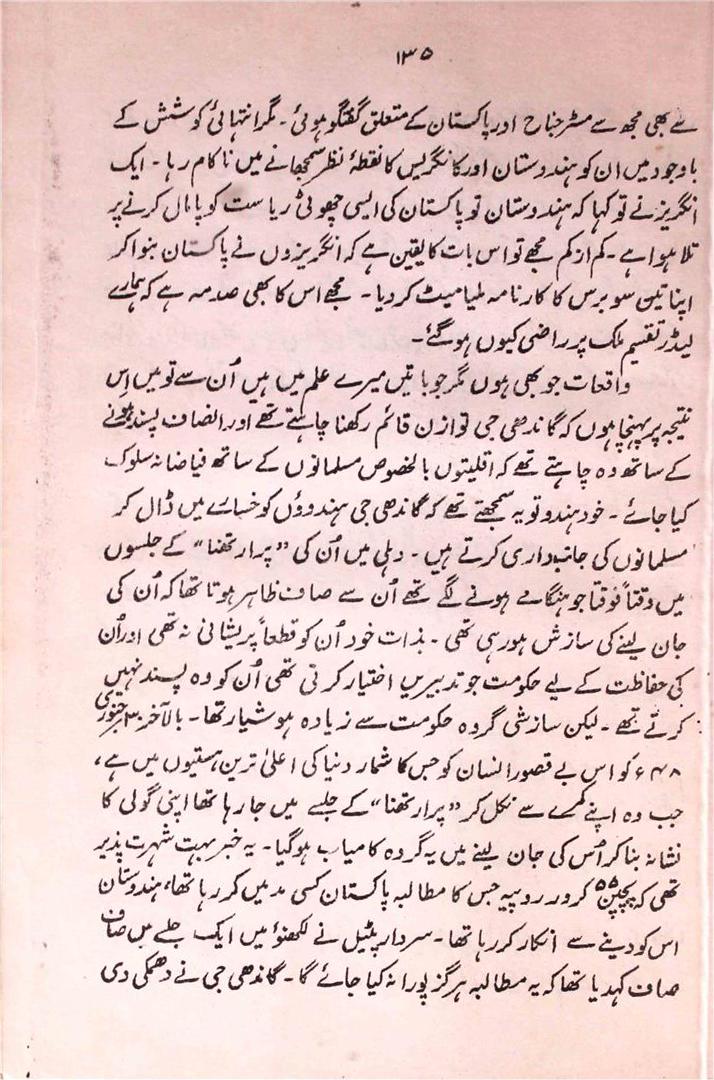 ۱۳۵
سے بھی مجھ سے مسٹر جناح اور پاکستان کے متعلق گفتگو ہوئی۔ مگر انتہائی کوشش کے
باوجود میں ان کو ہندوستان اور کانگریس کا نقطۂ نظر سمجھانے میں ناکام رہا۔ ایک
انگریز نے تو کہا کہ ہندوستان تو پاکستان کی ایسی چھوٹی ریاست کو پامال کرنے پر
تلا ہوا ہے۔ کم از کم مجھے تو اس بات کا یقین ہے کہ انگریزوں نے پاکستان بنوا کر
اپنا تین سو برس کا کارنامہ ملیامیٹ کر دیا۔ مجھے اس کا بھی صدمہ ہے کہ ہمارے
لیڈر تقسیم ملک پر راضی کیوں ہو گئے۔
واقعات جو بھی ہوں مگر جو باتیں میرے علم میں ہیں اُن سے تو میں اِس
نتیجہ پر پہنچا ہوں کہ گاندھی جی توازن قائم رکھنا چاہتے تھے اور انصاف پسند ہونے
کے ساتھ وہ چاہتے تھے کہ اقلیتوں بالخصوص مسلمانوں کے ساتھ فیاضانہ سلوک
کیا جائے۔ خود ہندو تو یہ سمجھتے تھے کہ گاندھی جی ہندوؤں کو خسارے میں ڈال کر
مسلمانوں کی جانبداری کرتے ہیں۔ دہلی میں اُن کی “پرارتھنا” کے جلسوں
میں وقتاً فوقتاً جو ہنگامے ہونے لگے تھے اُن سے صاف ظاہر ہوتا تھا کہ اُن کی
جان لینے کی سازش ہو رہی تھی۔ بذات خود اُن کو قطعاً پریشانی نہ تھی اور اُن
کی حفاظت کے لیے حکومت جو تدبیریں اختیار کرتی تھی اُن کو وہ پسند نہیں
کرتے تھے۔ لیکن سازشی گروہ حکومت سے زیادہ ہوشیار تھا۔ بالآخر ۳۰ر جنوری
۴۸ء کو اس بے قصور انسان کو جس کا شمار دنیا کی اعلیٰ ترین ہستیوں میں ہے،
جب وہ اپنے کمرے سے نکل کر “پرارتھنا” کے جلسے میں جا رہا تھا اپنی گولی کا
نشانہ بنا کر اُس کی جان لینے میں یہ گروہ کامیاب ہو گیا۔ یہ خبر بہت شہرت پذیر
تھی کہ پچپن ۵۵ کرور روپیہ جس کا مطالبہ پاکستان کسی مد میں کر رہا تھا، ہندوستان
اس کو دینے سے انکار کر رہا تھا۔ سردار پٹیل نے لکھنؤ میں ایک جلسے میں صاف
صاف کہدیا تھا کہ یہ مطالبہ ہرگز پورا نہ کیا جائے گا۔ گاندھی جی نے دھمکی دی